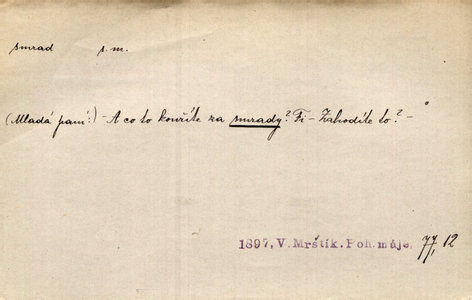 smrad s. m.
(Mladá paní:) - A co to kouříte za smrady? Fi - Zahodíte to? - "
1897, V. Mrštík. Poh. máje. 77, 12